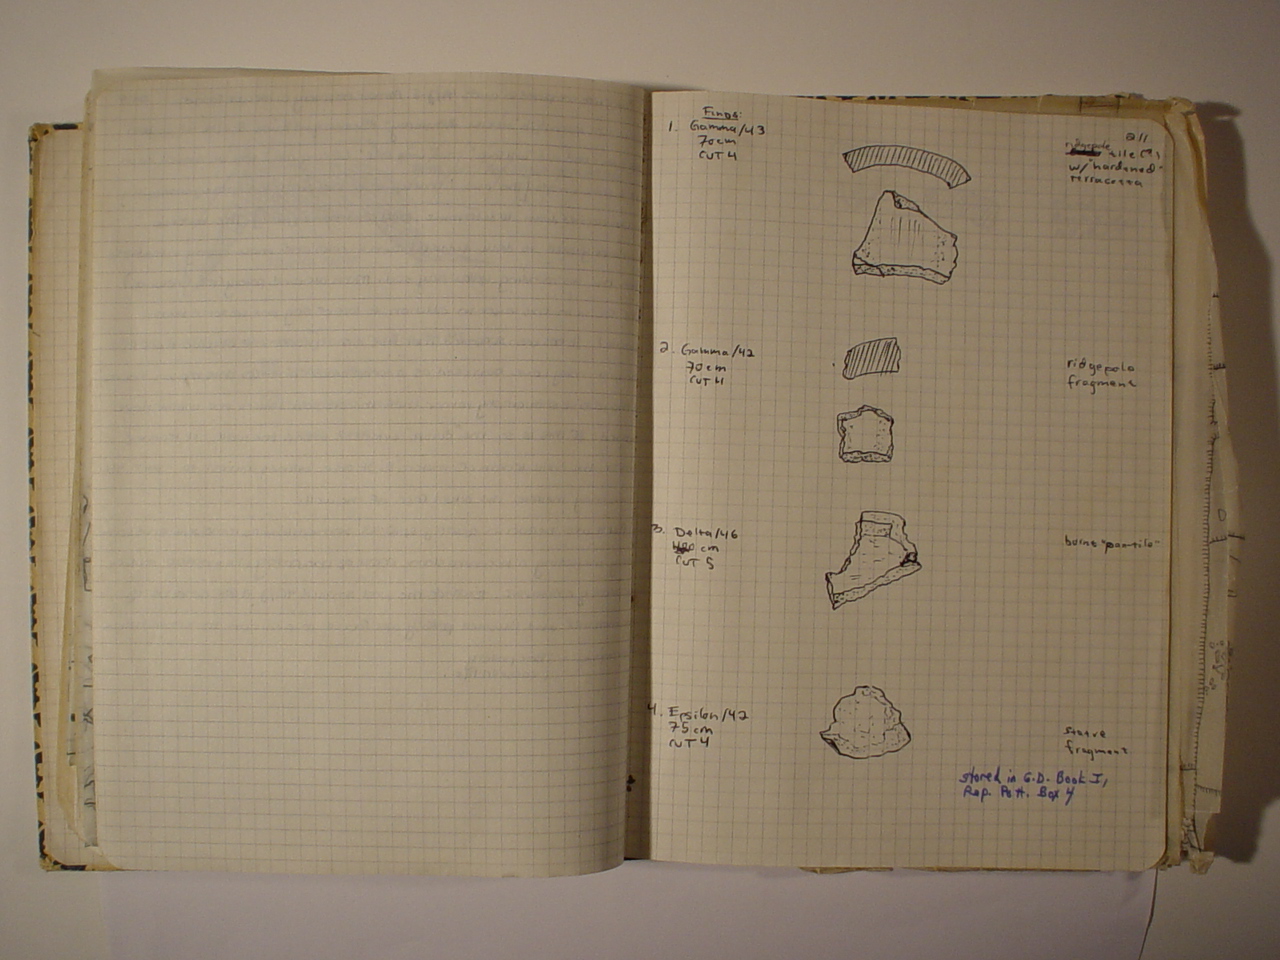 Finds:
211
1. Gamma/43
70cm
CUT 4
ridgepole
tile(?)
w/"hardened"
terracotta
2. Gamma/42
70cm
CUT 4
ridgepole
fragment
3. Delta/46
cm
CUT 5
burnt "pan tile"
4. Epsilon/42
75cm
CUT 4
statue
fragment
stored in G.D. Book I,
Rep. Pott. Box 4